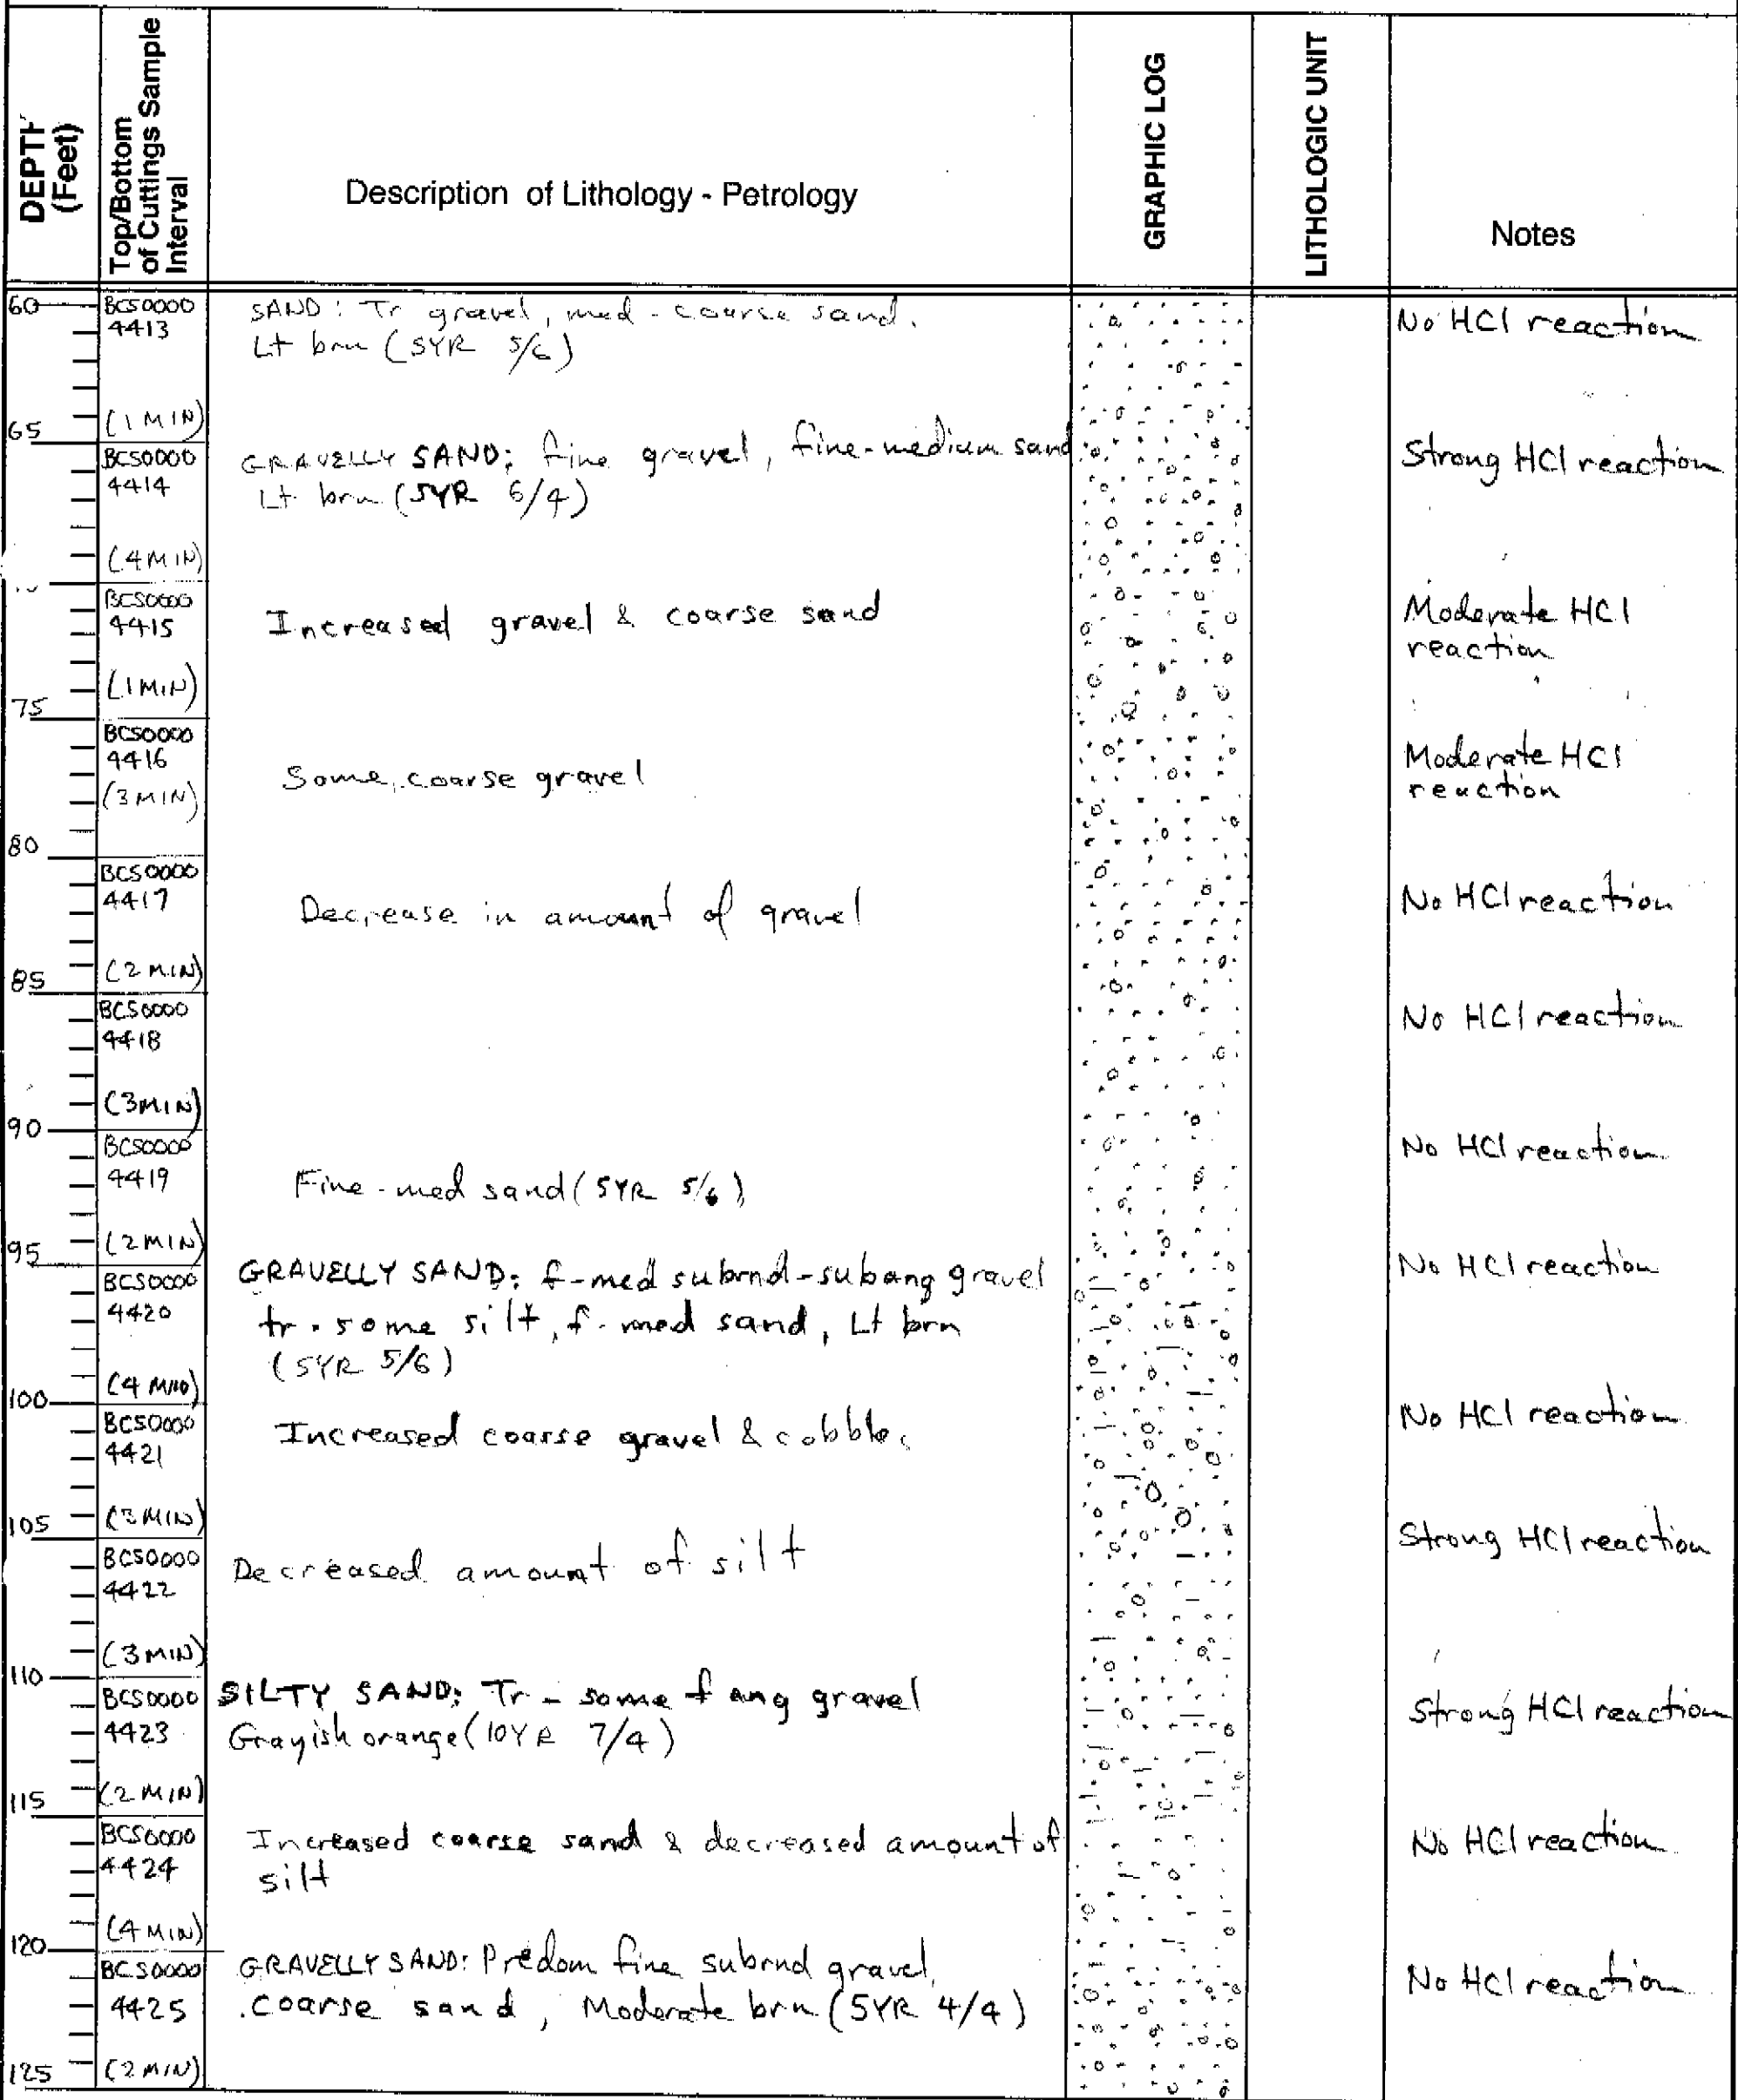 DEPTH
(Feet)
Top/Bottom
of Cuttings Sample
Interval
Description of Lithology - Petrology
GRAPHIC LOG
LITHOLOGIC UNIT
Notes
60
BCS0000
4413
SAND: Tr gravel, med-coarse sand.
Lt brn (5YR 5/6)
No HCl reaction
(1 MIN)
65
BCS0000
4414
GRAVELLY SAND: fine gravel, fine-medium sand
Lt brn (5YR 6/4)
Strong HCl reaction
(4 MIN)
BCS0000
4415
Increased gravel & coarse sand
Moderate HCl
reaction
(1 MIN)
75
BCS0000
4416
(3 MIN)
Some coarse gravel
Moderate HCl
reaction
80
BCS0000
4417
Decrease in amount of gravel
No HCl reaction
(2 MIN)
85
BCS0000
4418
No HCl reaction
(3 MIN)
90
BCS0000
4419
Fine-med sand (5YR 5/6)
No HCl reaction
(2 MIN)
95
BCS0000
4420
GRAVELLY SAND: f-med subrnd-subang gravel
tr-some silt, f-med sand, Lt brn
(5YR 5/6)
No HCl reaction
(4 MIN)
100
BCS0000
4421
Increased coarse gravel & cobble
No HCl reaction
(3 MIN)
105
BCS0000
4422
Decreased amount of silt
Strong HCl reaction
(3 MIN)
110
BCS0000
4423
SILTY SAND: Tr-some f ang gravel
Grayish orange (10YR 7/4)
Strong HCl reaction
(2 MIN)
115
BCS0000
4424
Increased coarse sand & decreased amount of
silt
No HCl reaction
(4 MIN)
120
BCS0000
4425
GRAVELLY SAND: Predom fine subrnd gravel,
coarse sand, Moderate brn (5YR 4/4)
No HCl reaction
125
(2 MIN)